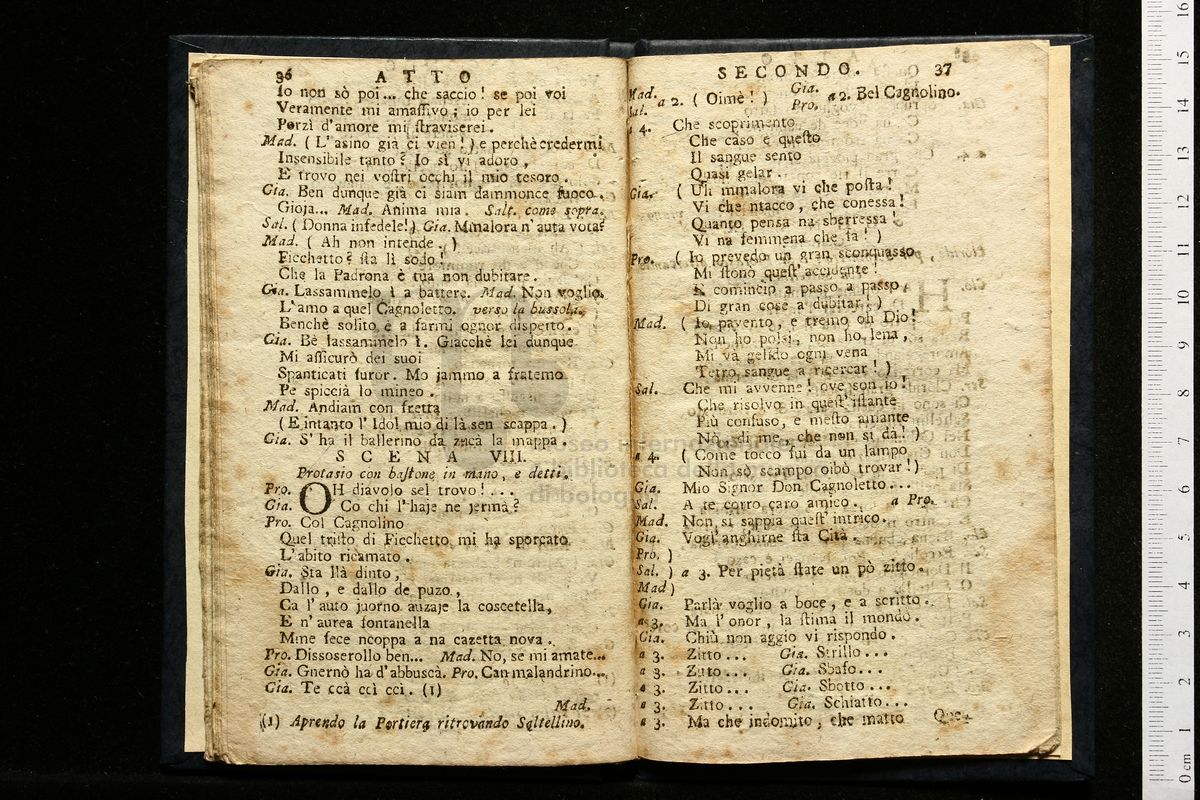 36 ATTO
Io non sò poi... che saccio! se poi voi
Veramente mi amassivo; io per lei
Porzì d'amore mi straviserei.
Mad. ( L'asino già ci vien! ) e perchè credermi
Insensibile tanto? Io sì vi adoro,
E trovo nei vostri occhi il mio tesoro.
Gia. Ben dunque già ci siam dammonce fuoco.
Gioja... Mad. Anima mia. Salt. come sopra.
Sal. ( Donna infedele! ) Gia. Mmalora n'auta vota?
Mad. ( Ah non intende. )
Ficchetto? sta lì sodo!
Che la Padrona è tua non dubitare.
Gia. Lassammelo ì a battere. Mad. Non voglio.
L'amo a quel Cagnoletto. verso la bussola.
Benchè solito è a farmi ognor dispetto.
Gia. Bè lassammelo ì. Giacchè lei dunque
Mi assicurò dei suoi
Spanticati furor. Mo jammo a fratemo
Pe spiccià lo mineo.
Mad. Andiam con fretta
( E intanto l'Idol mio di là sen scappa. )
Gia. S'ha il ballerino da zucà la mappa.
SCENA VIII.
Protasio con bastone in mano, e detti.
Pro. OH diavolo sel trovo!...
Gia. Co chi l'haje ne jermà?
Pro. Col Cagnolino
Quel tristo di Ficchetto mi ha sporcato
L'abito ricamato.
Gia. Sta llà dinto,
Dallo, e dallo de puzo,
Ca l'auto juorno auzaje la coscetella,
E n'aurea fontanella
Mme fece ncoppa a na cazetta nova.
Pro. Dissoserollo ben... Mad. No, se mi amate...
Gia. Gnernò ha d'abbuscà. Pro. Can malandrino...
Gia. Te ccà ccì ccì. (1)
Mad.
(1) Aprendo la Portiera ritrovando Saltellino.
SECONDO. 37
Mad. Sal. a 2. ( Oimè! ) Gia. Pro. a 2. Bel Cagnolino.
a 4. Che scoprimento
Che caso è questo
Il sangue sento
Quasi gelar.
Gia. ( Uh mmalora vi che posta!
Vi che ntacco, che conessa!
Quanto pensa na sberressa!
Vi na femmena che fa! )
Pro. ( Io prevedo un gran sconquasso,
Mi stonò quest'accidente!
E comincio a passo a passo
Di gran cose a dubitar! )
Mad. ( Io pavento, e tremo oh Dio!
Non ho polsi, non ho lena,
Mi va gelido ogni vena
Tetro sangue a ricercar! )
Sal. Che mi avvenne! ove son io!
Che risolvo in quest'istante
Più confuso, e mesto amante
Nò, di me, che non si dà! )
a 4. ( Come tocco fui da un lampo
Non sò scampo oibò trovar! )
Gia. Mio Signor Don Cagnoletto...
Sal. A te corro caro amico. a Pro.
Mad. Non si sappia quest'intrico.
Gia. Vogl'anghirne sta Cità.
Pro. )
Sal. ) a 3. Per pietà state un pò zitto.
Mad )
Gia. Parlà voglio a boce, e a scritto.
a 3. Ma l'onor, la stima il mondo.
Gia. Chiù non aggio vi rispondo.
a 3. Zitto... Gia. Strillo...
a 3. Zitto... Gia. Sbafo...
a 3. Zitto... Gia. Sbotto...
a 3. Zitto... Gia. Schiatto...
a 3. Ma che indomito, che matto
Que-